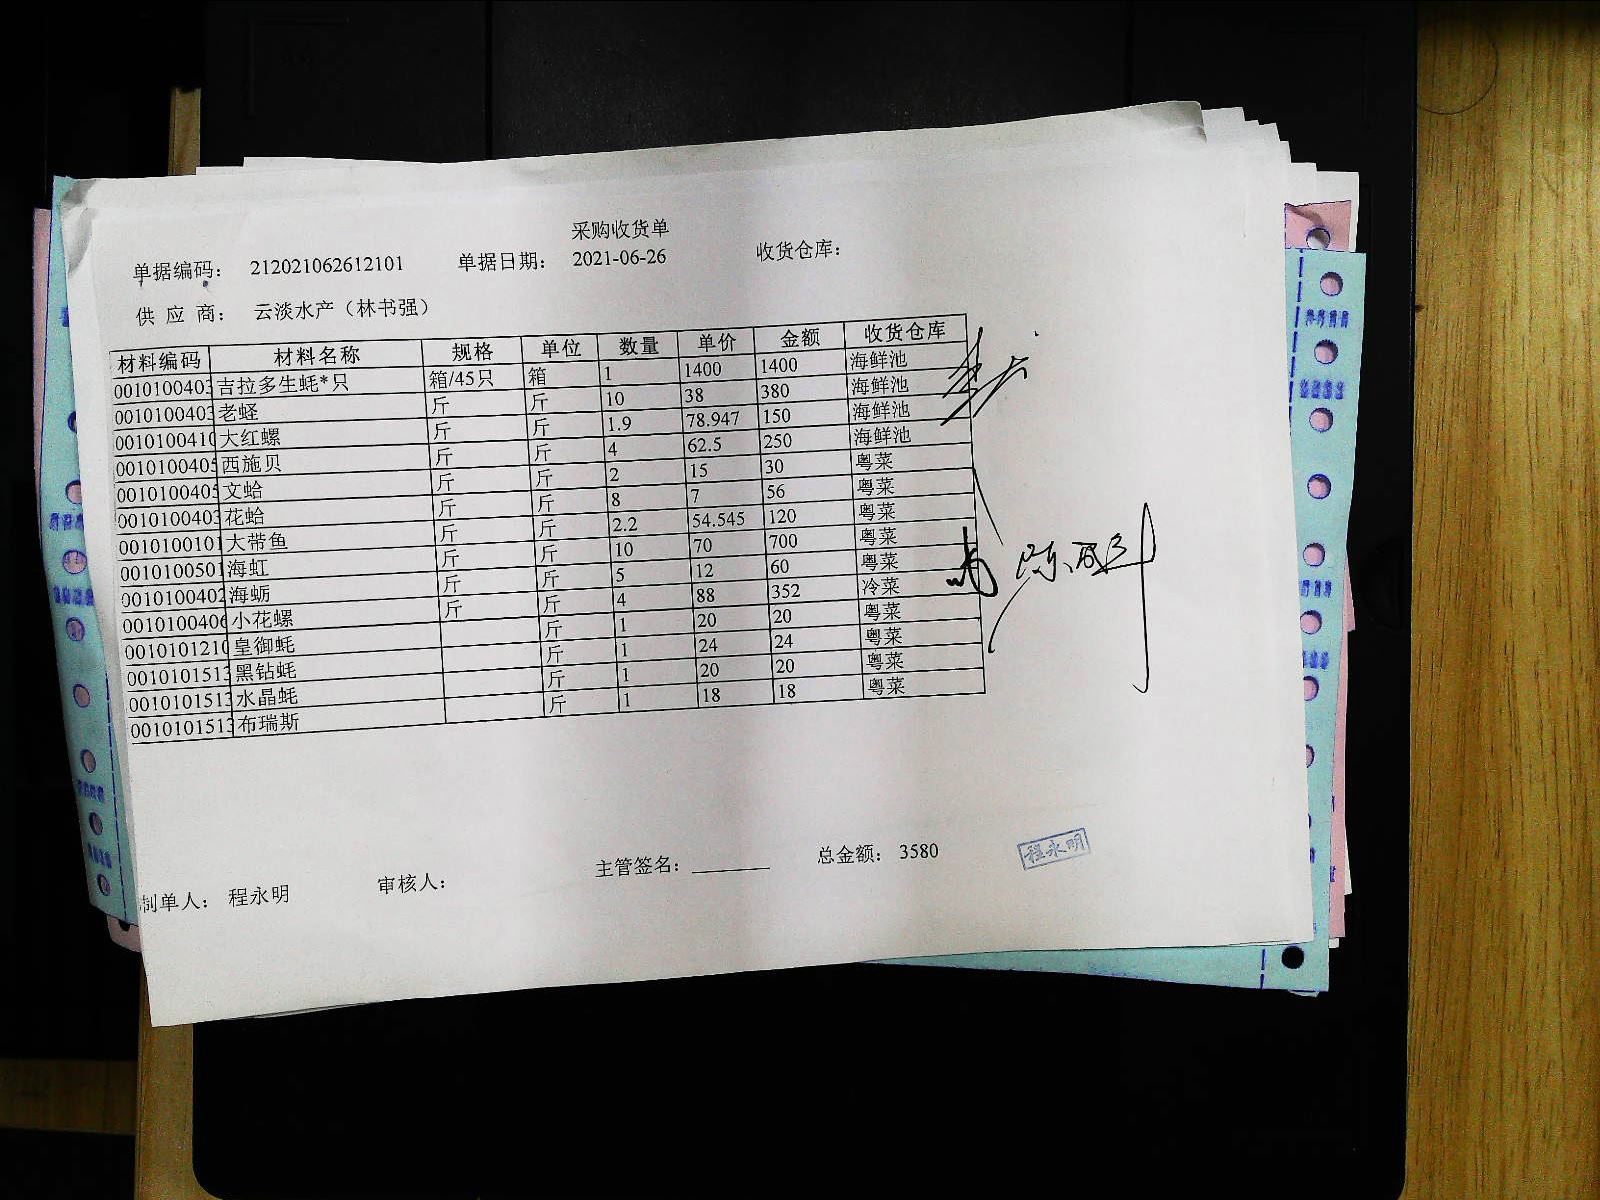 采购收货单
单据编码： 212021062612101 单据日期： 2021-06-26 收货仓库：
供 应 商： 云淡水产（林书强）
材料编码 材料名称 规格 单位 数量 单价 金额 收货仓库
0010100403 吉拉多生蚝*只 箱/45只 箱 1 1400 1400 海鲜池
0010100403 老蛏 斤 斤 10 38 380 海鲜池
0010100410 大红螺 斤 斤 1.9 78.947 150 海鲜池
0010100405 西施贝 斤 斤 4 62.5 250 海鲜池
0010100405 文蛤 斤 斤 2 15 30 粤菜
0010100403 花蛤 斤 斤 8 7 56 粤菜
0010100101 大带鱼 斤 斤 2.2 54.545 120 粤菜
0010100501 海虹 斤 斤 10 70 700 粤菜
0010100402 海蛎 斤 斤 5 12 60 粤菜
0010100406 小花螺 斤 斤 4 88 352 冷菜
0010101210 皇御蚝 斤 1 20 20 粤菜
0010101513 黑钻蚝 斤 1 24 24 粤菜
0010101513 水晶蚝 斤 1 20 20 粤菜
0010101513 布瑞斯 斤 1 18 18 粤菜
制单人： 程永明 审核人： 主管签名： 总金额： 3580
程永明